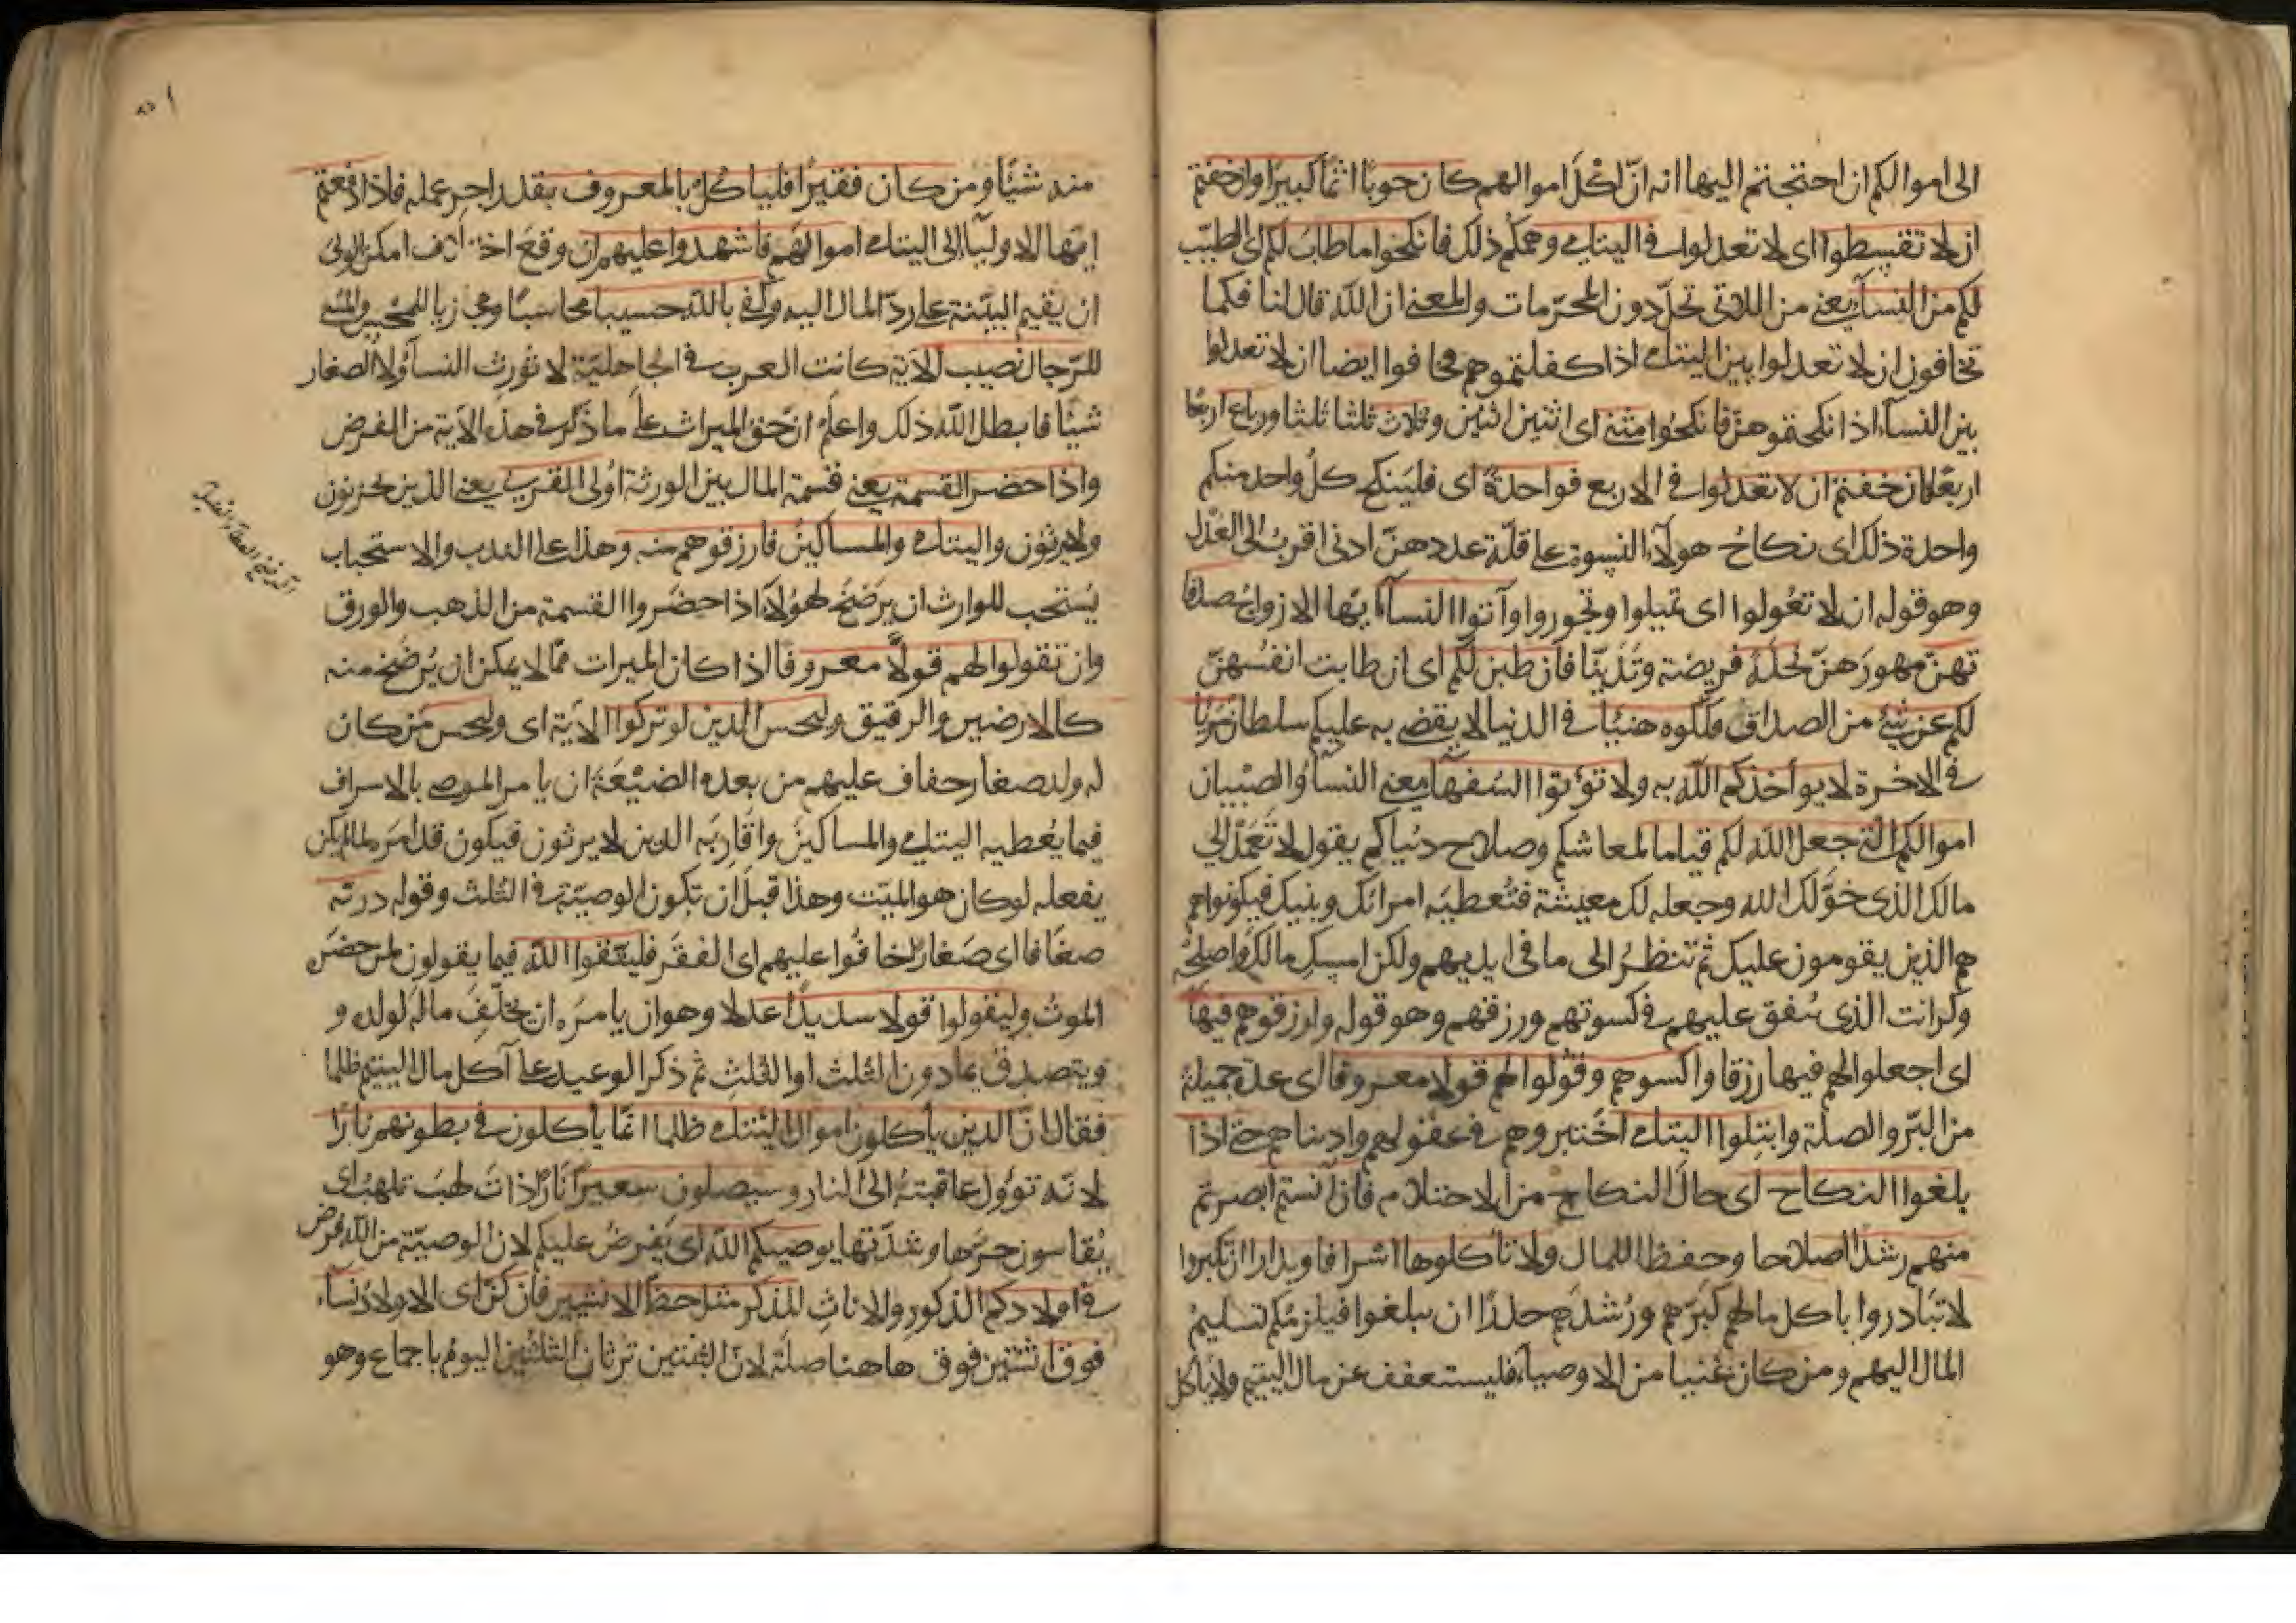 الى اموالكم ان احتجتم اليها انه ان اكل اموالهم كان حوبا اثما كبيرا وان خفتم
ان لا تقسطوا اى لا تعدلوا فى اليتامى وهمكم ذلك فانكحوا ما طاب لكم اى الطيب
لكم من النساء يعنى من اللاتى تحل دون المحرمات والمعنى ان الله قال لنا فكما
تخافون ان لا تعدلوا بين اليتامى اذا كفلتموهم فخافوا ايضا ان لا تعدلوا
بين النساء اذا نكحتموهن فانكحوا مثنى اى اثنين اثنين وثلاث ثلثا ثلثا ورباع اربعا
اربعا فان خفتم ان لا تعدلوا فى الاربع فواحدة اى فلينكح كل واحد منكم
واحدة ذلك اى نكاح هولاء النسوة على قلة عددهن ادنى اقرب الى العدل
وهو قوله ان لا تعولوا اى تميلوا وتجوروا وآتوا النساء ايها الازواج صدقا
تهن مهورهن نحلة فريضة وتدينا فان طبن لكم اى ان طابت انفسهن
لكم عن شئ من الصداق فكلوه هنيئا فى الدنيا لا يقضى به عليكم سلطان مريئا
فى الاخرة لا يواخذكم الله به ولا تؤتوا السفهاء يعنى النساء والصبيان
اموالكم التى جعل الله لكم قياما لمعاشكم وصلاح دنياكم يقول لا تعمد الى
مالك الذى خولك الله وجعله لك معيشة فتعطيه امراتك وبنيك فيكونوا هم
هم الذين يقومون عليك ثم تنظر الى ما فى ايديهم ولكن امسك مالك واصلحه
وكن انت الذى تنفق عليهم فى كسوتهم ورزقهم وهو قوله وارزقوهم فيها
اى اجعلوا لهم فيها رزقا واكسوهم وقولوا لهم قولا معروفا اى عدة جميلة
من البر والصلة وابتلوا اليتامى اختبروهم فى عقولهم واديانهم حتى اذا
بلغوا النكاح اى حال النكاح من الاحتلام فان آنستم ابصرتم
منهم رشدا اصلاحا وحفظا للمال ولا تأكلوها اسرافا وبدارا ان يكبروا
لا تبادروا باكل مالهم كبرهم ورشدهم حذرا ان يبلغوا فيلزمكم تسليم
المال اليهم ومن كان غنيا من الاوصياء فليستعفف عن مال اليتيم ولا يأكل
منه شيئا ومن كان فقيرا فلياكل بالمعروف بقدر اجر عمله فاذا دفعتم
ايها الاولياء الى اليتامى اموالهم فاشهدوا عليهم ان وقع اختلاف امكن الولى
ان يقيم البينة على رد المال اليه وكفى بالله حسيبا محاسبا ومجازيا للمحسن والمسئ
للرجال نصيب الآية كانت العرب فى الجاهلية لا تورث النساء ولا الصغار
شيئا فابطل الله ذلك واعلم ان حق الميراث على ما ذكر فى هذه الآية من الفرض
واذا حضر القسمة يعنى قسمة المال بين الورثة اولى القربى يعنى الذين يحزنون
ولا يرثون واليتامى والمساكين فارزقوهم منه وهذا على الندب والاستحباب
يستحب للوارث ان يرضخ لهؤلاء اذا حضروا القسمة من الذهب والورق
وان تقولوا لهم قولا معروفا اذا كان الميراث مما لا يمكن ان يرضخ منه
كالارضين والرقيق وليخش الذين لو تركوا الاية اى وليخش من كان
له ولد صغار خاف عليهم من بعده الضيعة ان يامر الموصى بالاسراف
فيما يعطيه اليتامى والمساكين واقاربه الذين لا يرثون فيكون قد امر بما لم يكن
يفعله لو كان هو الميت وهذا قبل ان تكون الوصية فى الثلث وقوله درية
ضعافا اى صغارا خافوا عليهم اى الفقر فليتقوا الله فيما يقولون لمن حضره
الموت وليقولوا قولا سديدا عدلا وهو ان يامره ان يخلف ماله لولده و
ويتصدق بما دون الثلث او الثلث ثم ذكر الوعيد على آكل مال اليتيم ظلما
فقال ان الدين يأكلون اموال اليتامى ظلما انما يأكلون فى بطونهم نارا
لانه تؤول عاقبته الى النار وسيصلون سعيرا نارا ذات لهب تلهب اى
يقاسون حرها وشدتها يوصيكم الله اى يفرض عليكم لان الوصية من الله فرض
فى اولادكم الذكور والاناث للذكر مثل حظ الانثيين فان كن اى الاولاد نساء
فوق اثنتين فوق هاهنا صلة لان الثنتين ترثان الثلثين اليوم باجماع وهو